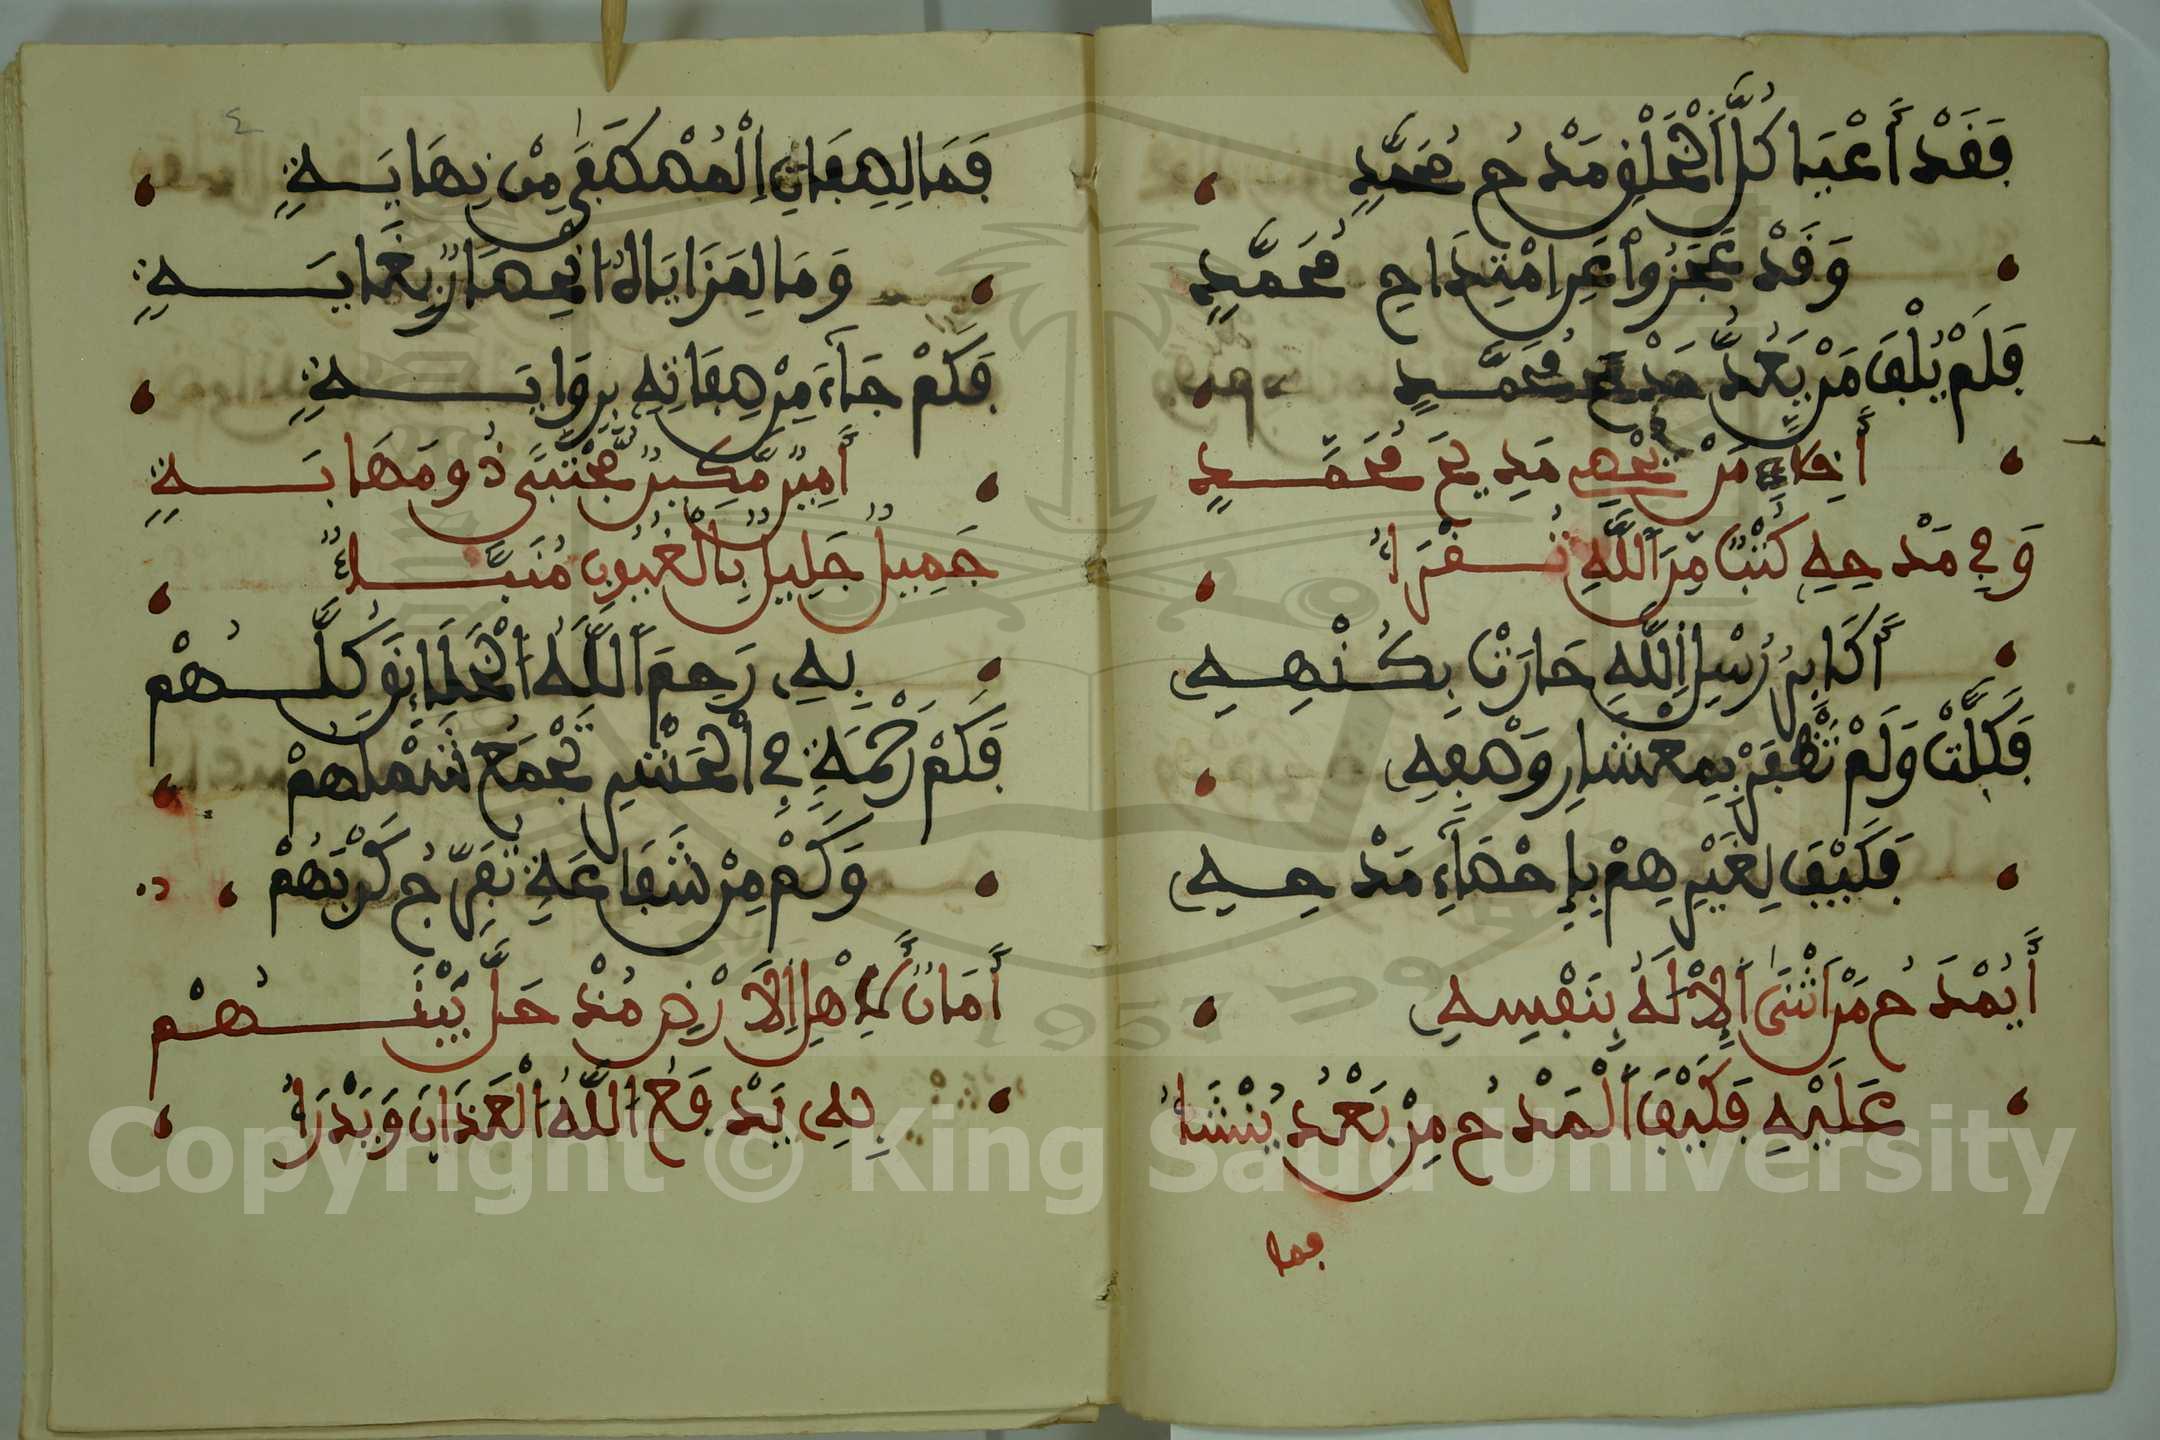 فَقَدْ أَعْيَا كُلَّ الْخَلْقِ مَدْحُ مُحَمَّدٍ
وَقَدْ عَجَزُواْ عَنِ امْتِدَاحِ مُحَمَّدٍ
فَلَمْ يُلْفَ مَنْ يَعُدُّ مَدْحَ مُحَمَّدٍ
مَنْ يُحْصِ مَدِيحَ مُحَمَّدٍ
وَفِي مَدْحِهِ كُتْبٌ مِّنَ اللَّهِ تُقْرَأُ
أَكَابِرُ رُسْلِ اللَّهِ حَارَتْ بِكُنْهِهِ
فَكَلَّتْ وَلَمْ تَظْفَرْ بِمِعْشَارِ وَصْفِهِ
فَكَيْفَ لِغَيْرِهِمْ بِإِحْصَاءِ مَدْحِهِ
أَيُمْدَحُ مَنْ أَثْنَى الْإِلَهُ بِنَفْسِهِ
عَلَيْهِ فَكَيْفَ الْمَدْحُ مِنْ بَعْدُ يُنْشَأُ
فما
٤
فَمَا لِصِفَاتِ الْمُصْطَفَى مِنْ نِهَايَةٍ
وَمَا لِمَزَايَاهُ انْحِصَارٌ بِغَايَةٍ
فَكَمْ جَاءَ مِنْ صِفَاتِهِ بِرِوَايَةٍ
أَمِينٌ مَّكِينٌ مُّجْتَبًى ذُو مَهَابَةٍ
جَمِيلٌ جَلِيلٌ بِالْغُيُوبِ مُنَبَّأُ
بِهِ رَحِمَ اللَّهُ الْخَلَائِقَ كُلَّهُمْ
فَكَمْ رَحْمَةٍ فِي الْحَشْرِ تَجْمَعُ شَمْلَهُمْ
وَكَمْ مِنْ شَفَاعَةٍ تُفَرِّجُ كَرْبَهُمْ
أَمَانٌ لِأَهْلِ الْأَرْضِ مُنْذُ حَلَّ بَيْنَهُمْ
بِهِ يَدْفَعُ اللَّهُ الْعَذَابَ وَيَدْرَأُ
Copyright © King Saud University
1957